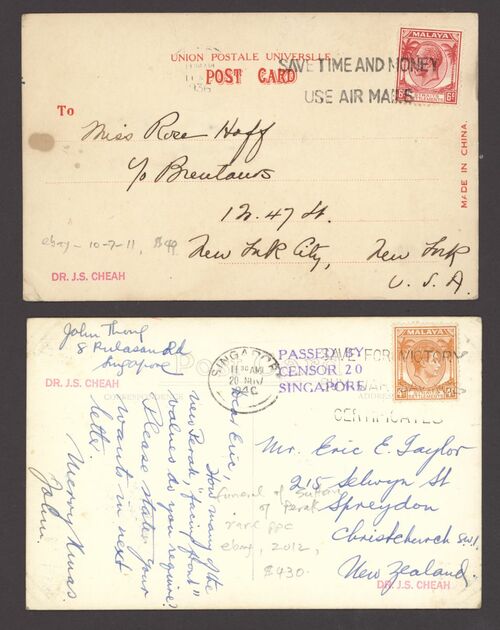 UNION POSTALE UNIVERSLLE
POST CARD
1936
SAVE TIME AND MONEY
USE AIR MAILS
MALAYA
6c
To
Miss Rose Hoff
c/o Brentanos
1 W. 47 St.
New York City, New York
U. S. A.
MADE IN CHINA.
ebay - 10-7-11, $49
DR. J.S. CHEAH
John Thong
Singapore
DR. J.S. CHEAH
SINGAPORE
20 NOV
1940
PASSED BY
CENSOR 20
SINGAPORE
SAVE FOR VICTORY
CERTIFICATES
MALAYA
Dear Eric,
How many of the
new Perak, "facing front"
values do you require?
Please state your
wants in next
letter.
Merry Xmas.
John.
Mr. Eric E. Taylor
215 Selwyn St
Spreydon
Christchurch SW1.
New Zealand.
funeral of Sultan
of Perak
rare PPC
ebay, 2012,
$430.
DR. J.S. CHEAH